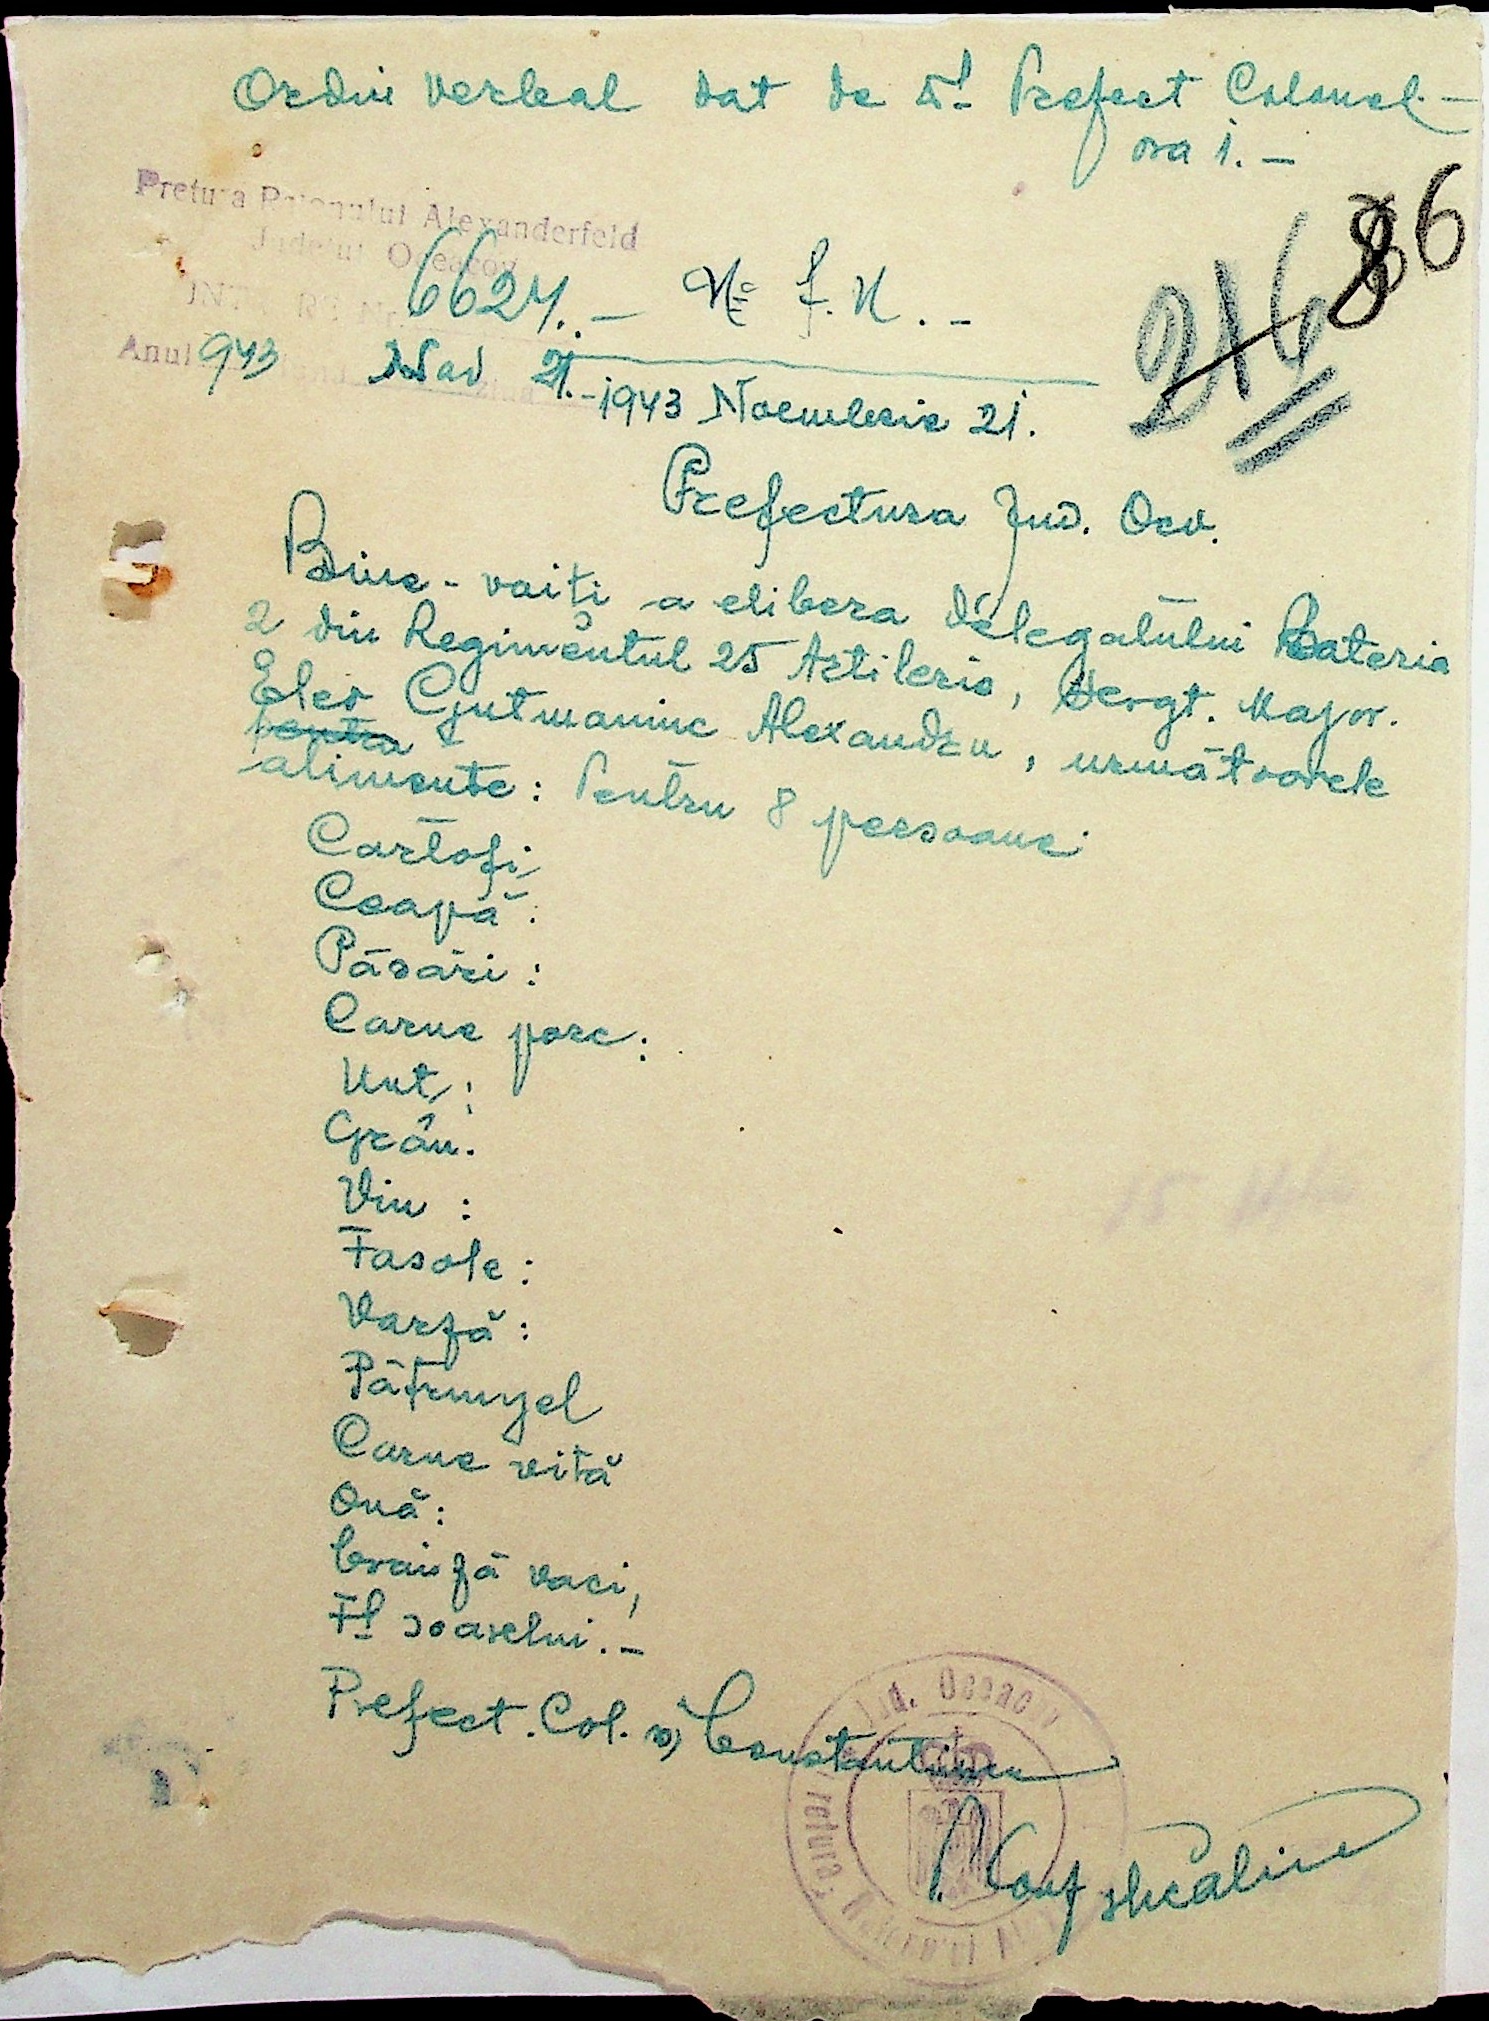 Ordin verbal dat de Dl Prefect Colonel.-
ora 1.-
Pretura Raionului Alexanderfeld
Judetul Oceacov
INTRARE Nr. 6627.-
Anul 943 Noe 21.-
No f. N.-
1943 Noembrie 21.
86
Prefectura Jud. Ocv.
Bine-voiți a elibera delegatului Bateria
2 din Regimentul 25 Artilerie, Sergt. Major.
Elev Gutmaninc Alexandru, următoarele
pentru
alimente: Pentru 8 persoane:
Cartofi,
Ceapă:
Păsări:
Carne porc:
Unt:
Grâu.
Vin:
Fasole:
Varză:
Pătrunjel
Carne vită
Ouă:
Brânză vaci,
Fl soarelui.-
Prefect. Col. ss) Constantinescu
Jud. Oceacov
P. Conf.